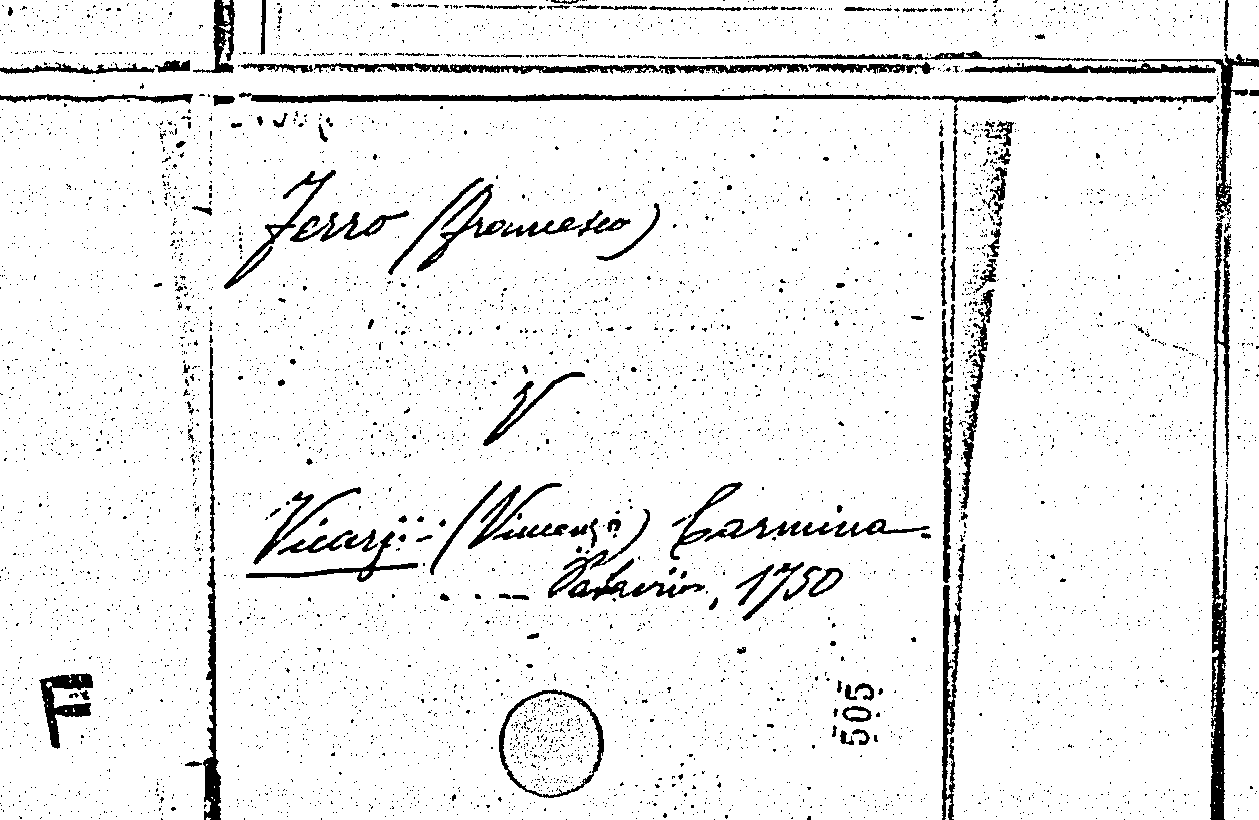 Ferro (Francesco)
V
Vicarj (Vincenzo) Carmina.
Patavii, 1750
505
F